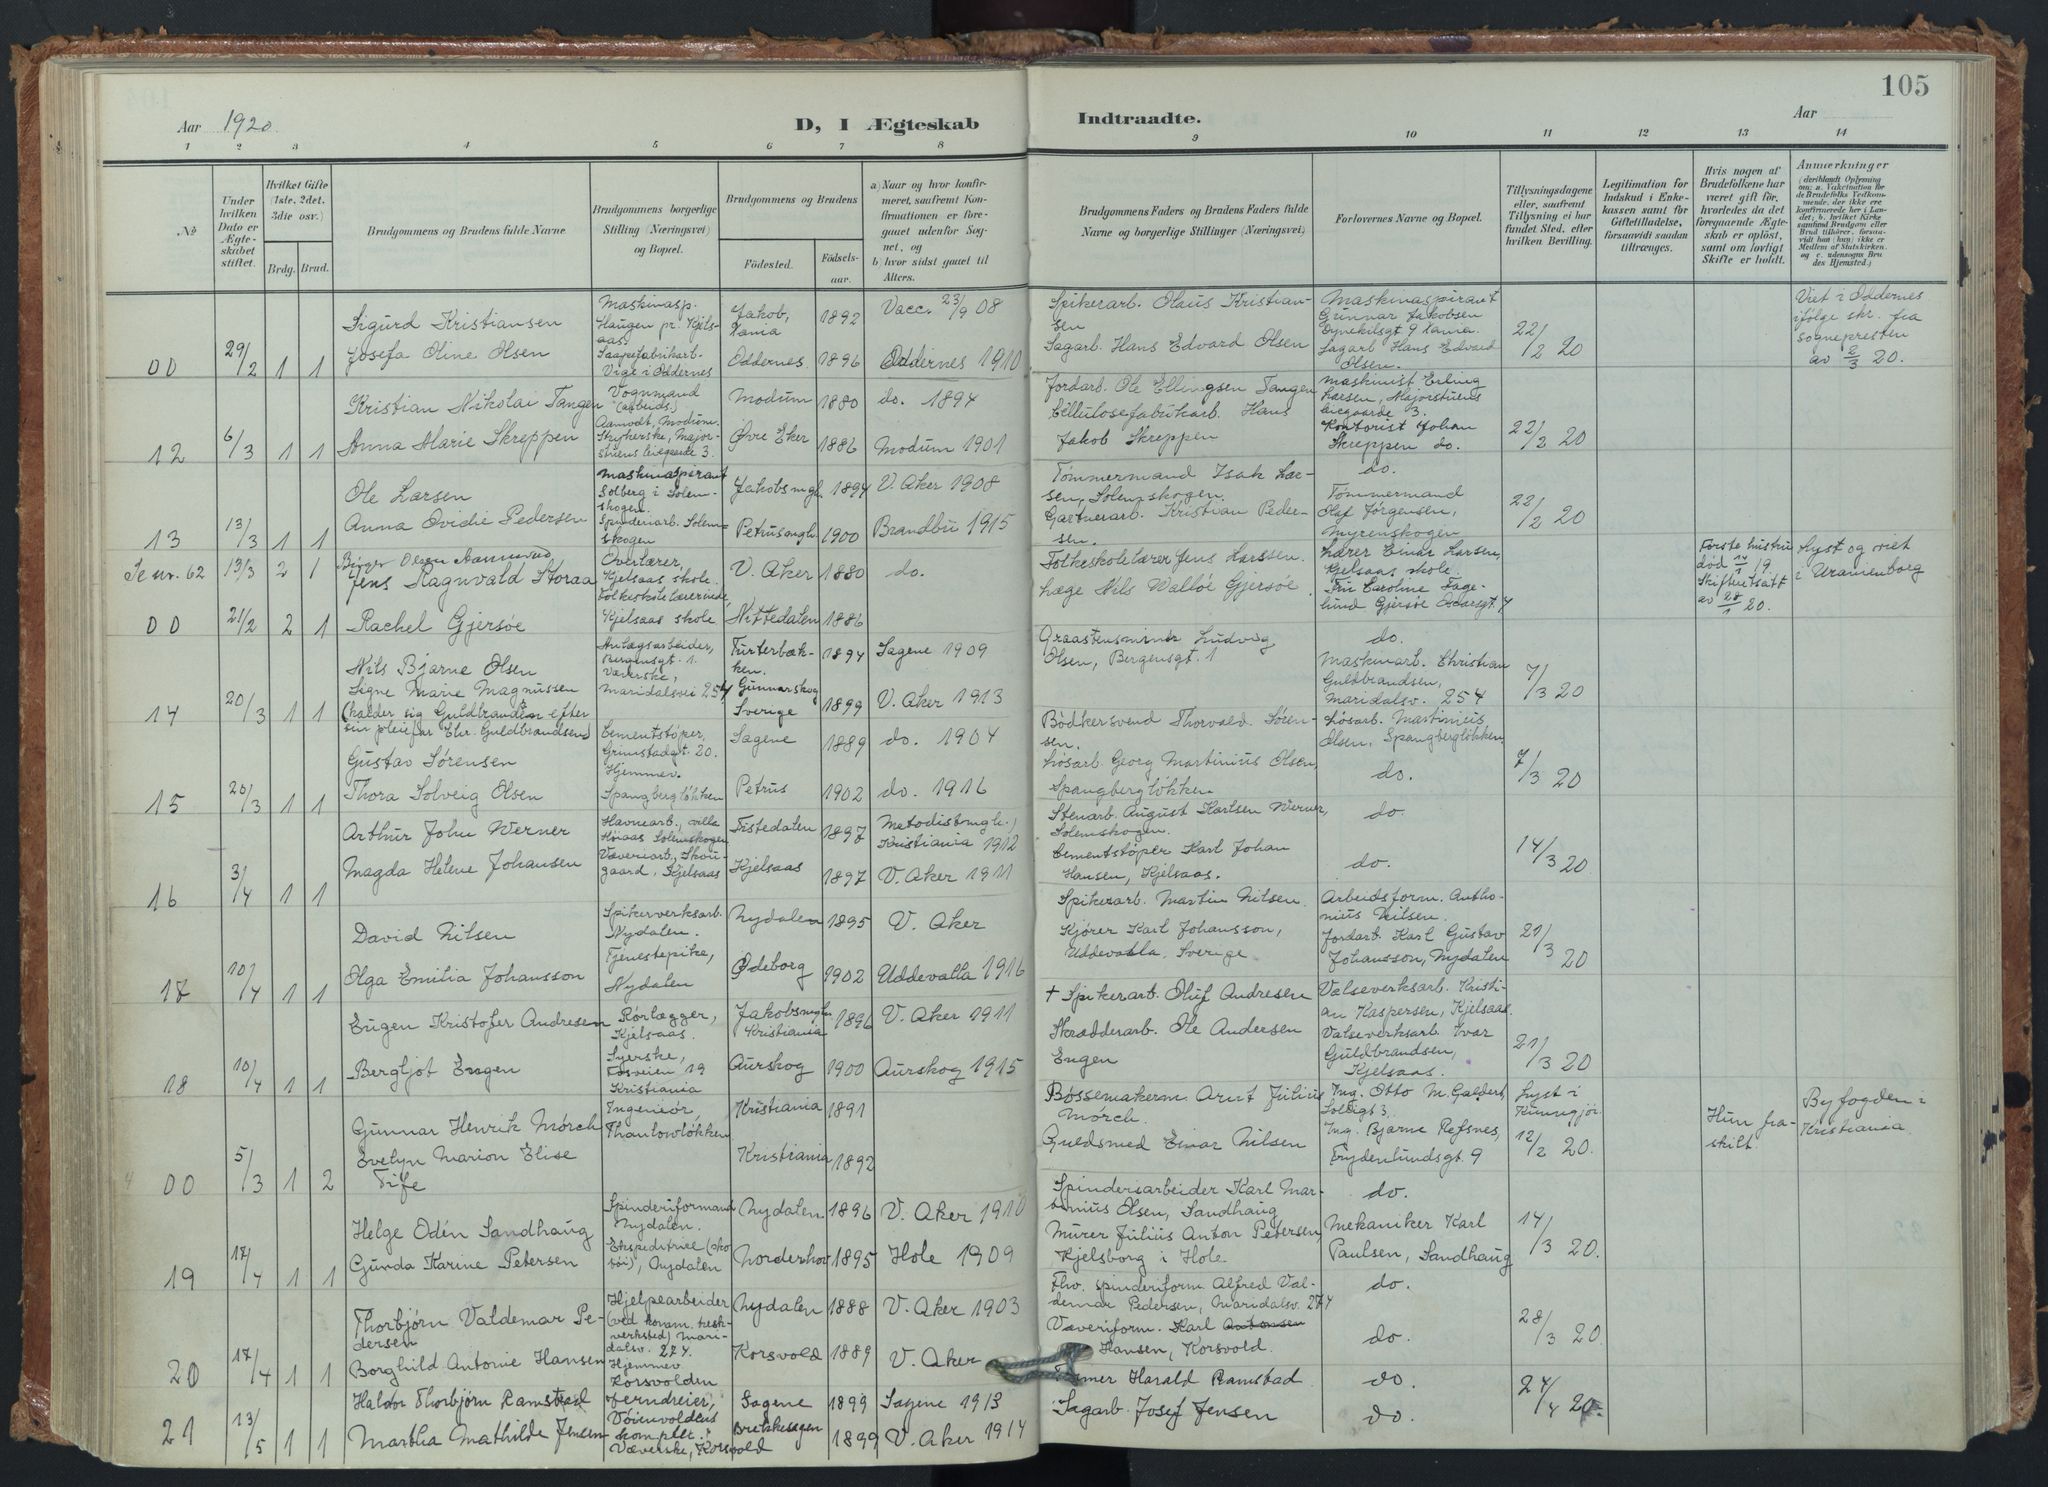 105
Aar 1920.
D, I Ægteskab
Indtraadte.
Aar
1 2 3 4 5 6 7 8 9 10 11 12 13 14
No
Under hvilken Dato er Ægteskabet stiftet.
Hvilket Gifte (1ste, 2det, 3die osv.)
Brdg. Brud.
Brudgommens og Brudens fulde Navne.
Brudgommens borgerlige Stilling (Næringsvei) og Bopel.
Brudgommens og Brudens
Födested.
Födsels-aar.
a) Naar og hvor konfirmeret, saafremt Konfirmationen er foregaaet udenfor Sognet, og
b) hvor sidst gaaet til Alters.
Brudgommens Faders og Brudens Faders fulde Navne og borgerlige Stillinger (Næringsvei)
Forlovernes Navne og Bopel.
Tillysningsdagene eller, saafremt Tillysning ei har fundet Sted, efter hvilken Bevilling.
Legitimation for Indskud i Enkekassen samt for Giftetilladelse, forsaavidt saadan tiltrænges.
Hvis nogen af Brudefolkene har været gift för, hvorledes da det foregaaende Ægteskab er oplöst, samt om lovligt Skifte er holdt.
Anmærkninger
(deriblandt Oplysning om: a. Vakcination for de Brudefolks Vedkommende, der ikke ere konfirmerede her i Landet; b. hvilket Kirkesamfund Brudgom eller Brud tilhörer, forsaavidt han (hun) ikke er Medlem af Statskirken, og c. udensogns Brudes Hjemsted.)
Sigurd Kristiansen Maskinasp. Haugen pr. Kjelsaas. Jakob, Xania 1892 Vacc. 23/9 08 Spikerarb. Olaus Kristiansen Maskinaspirant Gunnar Jakobsen Xania. Viet i Oddernes ifølge skr. fra sognepresten av 2/3 20.
00 29/2 1 1 Josefa Oline Olsen Saapefabrikarb. Vige i Oddernes Oddernes 1896 Oddernes 1910 Sagarb. Hans Edvard Olsen Sagarb Hans Edvard Olsen. 22/2 20
Kristian Nikolai Tangen Vognmand (arbeids.) Aamodt, Modum. Modum 1880 do. 1894 Jordarb. Ole Ellingsen Tangen Maskinist Erling Larsen, Majorstuens levegaarde 3.
12 6/3 1 1 Anna Marie Skreppen Strykerske, Majorstuens levegaarde 3. Øvre Eker 1886 Modum 1901 Cellulosefabrikarb. Hans Jakob Skreppen Kontorist Johan Skreppen do. 22/2 20
Ole Larsen Maskinaspirant Solberg i Solemskogen. Jakobsmgh. 1894 V. Aker 1908 Tømmermand Isak Larsen, Solemskogen. do.
13 13/3 1 1 Anna Ovidie Pedersen Spinderiarb. Solemskogen Petrusmgh. 1900 Brandbu 1915 Gartnerarb. Kristian Pedersen. Tømmermand Olaf Jørgensen, Myrenskogen 22/2 20
Se nr. 62 13/3 2 1 Birger Olsen Aamrud
Jens Ragnvald Storaa Overlærer, Kjelsaas skole. V. Aker 1880 do. Folkeskolelærer Jens Larssen. Lærer Einar Larsen, Kjelsaas skole. Første hustru død 19 Skifteutsatt av 28/1 20. Lyst og viet i Uranienborg
00 21/2 2 1 Rachel Gjersøe Folkeskolelærerinde, Kjelsaas skole Nittedalen 1886 Læge Nils Walløe Gjersøe Fru Caroline Fagelund Gjersøe Oscarsgt. 4
Nils Bjarne Olsen Anlægsarbeider, Bergensgt. 1. Furterbakken. 1894 Sagene 1909 Graastensminer Ludvig Olsen, Bergensgt. 1 do.
14 20/3 1 1 Signe Marie Magnussen (kalder sig Guldbrandsen efter sin pleiefar Chr. Guldbrandsen) Væverske, Maridalsvei 254 Gunnarskog Sverige 1899 V. Aker 1913 Maskinarb. Christian Guldbrandsen, Maridalsv. 254 7/3 20
Gustav Sørensen Cementstøper, Grimstadgt. 20. Sagene 1889 do. 1904 Bødkersvend Thorvald Sørensen. Løsarb. Martinius Olsen, Spangbergløkken
15 20/3 1 1 Thora Solveig Olsen Hjemmev. Spangbergløkken Petrus 1902 do. 1916 Løsarb. Georg Martinius Olsen, Spangbergløkken do. 7/3 20
Arthur John Werner Havnearb., villa Solemskogen Tistedalen 1897 Metodistmgh., Kristiania 1912 Stenarb. August Karlsen Werner, Solemskogen. do.
16 3/4 1 1 Magda Helene Johansen Væveriarb., Skougaard, Kjelsaas Kjelsaas 1897 V. Aker 1911 Cementstøper Karl Johan Hansen, Kjelsaas. do. 14/3 20
David Nilsen Spikerverksarb. Nydalen. Nydalen 1895 V. Aker Spikerarb. Martin Nilsen. Arbeidsform. Anthonius Nilsen.
17 10/4 1 1 Olga Emilia Johansson Tjenestepike, Nydalen Ødeborg 1902 Uddevalla 1916 Kjører Karl Johansson, Uddevalla, Sverige Jordarb. Karl Gustav Johansson, Nydalen 21/3 20
Eugen Kristofer Andresen Rørlægger, Kjelsaas. Jakobsmgh. Kristiania 1896 V. Aker 1911 + Spikerarb. Oluf Andresen Valseverksarb. Kristian Kaspersen, Kjelsaas.
18 10/4 1 1 Bergljot Engen Syerske, Fosveien 19 Kristiania Aurskog 1900 Aurskog 1915 Skrædderarb. Ole Andersen Engen Valseverksarb. Ivar Guldbrandsen, Kjelsaas. 21/3 20
Gunnar Henrik Mørch Ingeniør, Thanlowløkken Kristiania 1891 Bøssemakerm. Arnt Julius Mørch. Ing. Otto M. Galdert, Solligt 3. Lyst i Kunngjør. Hun fraskilt. Byfogden i Kristiania.
00 5/3 1 2 Evelyn Marion Elise Fife Kristiania 1892 Guldsmed Einar Nilsen Ing. Bjarne Refsnes, Frydenlundsgt. 9 12/2 20.
Helge Odén Sandhaug Spinderiformand Nydalen. Nydalen 1896 V. Aker 1910 Spinderiarbeider Karl Martinius Olsen, Sandhaug do.
19 17/4 1 1 Gunda Karine Petersen Ekspeditrice (skotøi), Nydalen Norderhov 1895 Hole 1909 Murer Julius Anton Petersen, Kjelsborg i Hole. Mekaniker Karl Paulsen, Sandhaug 14/3 20.
Thorbjørn Valdemar Pedersen Hjelpearbeider (ved komm. verksted) Maridalsv. 274. Nydalen 1888 V. Aker 1903 Fhv. spinderiform. Alfred Valdemar Pedersen, Maridalsv. 274 do.
20 17/4 1 1 Borghild Antonie Hansen Hjemmev. Korsvolden Korsvold 1889 V. Aker Væveriform. Karl Antonsen Hansen, Korsvold. do. 28/3 20.
Haldor Thorbjørn Ramstad Jerndreier, Vøienvoldens komplet. Sagene 1899 Sagene 1913 Harald Ramstad do.
21 13/5 1 1 Martha Mathilde Jensen Væverske, Korsvold Brekkesagen 1899 V. Aker 1914 Sagarb. Josef Jensen do. 24/4 20.